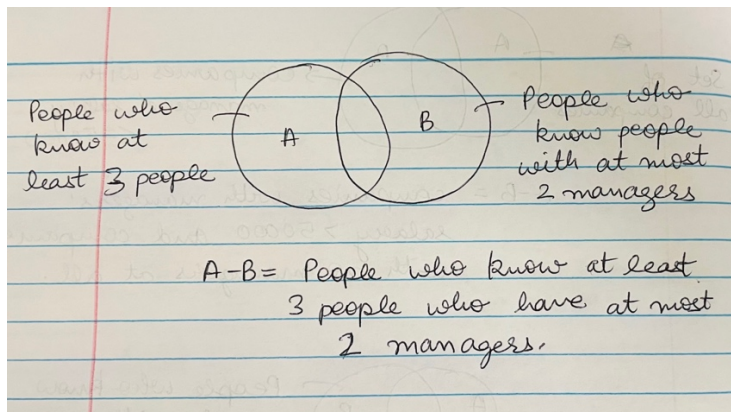 People who
know at
least 3 people
A
B
People who
know people
with at most
2 managers
A-B = People who know at least
3 people who have at most
2 managers.